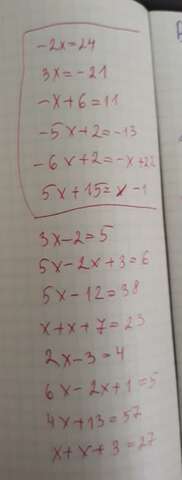 -2x=24
3x=-21
-x+6=11
-5x+2=-13
-6x+2=-x+22
5x+15=x-1
3x-2=5
5x-2x+3=6
5x-12=38
x+x+7=23
2x-3=4
6x-2x+1=5
4x+13=57
x+x+3=27